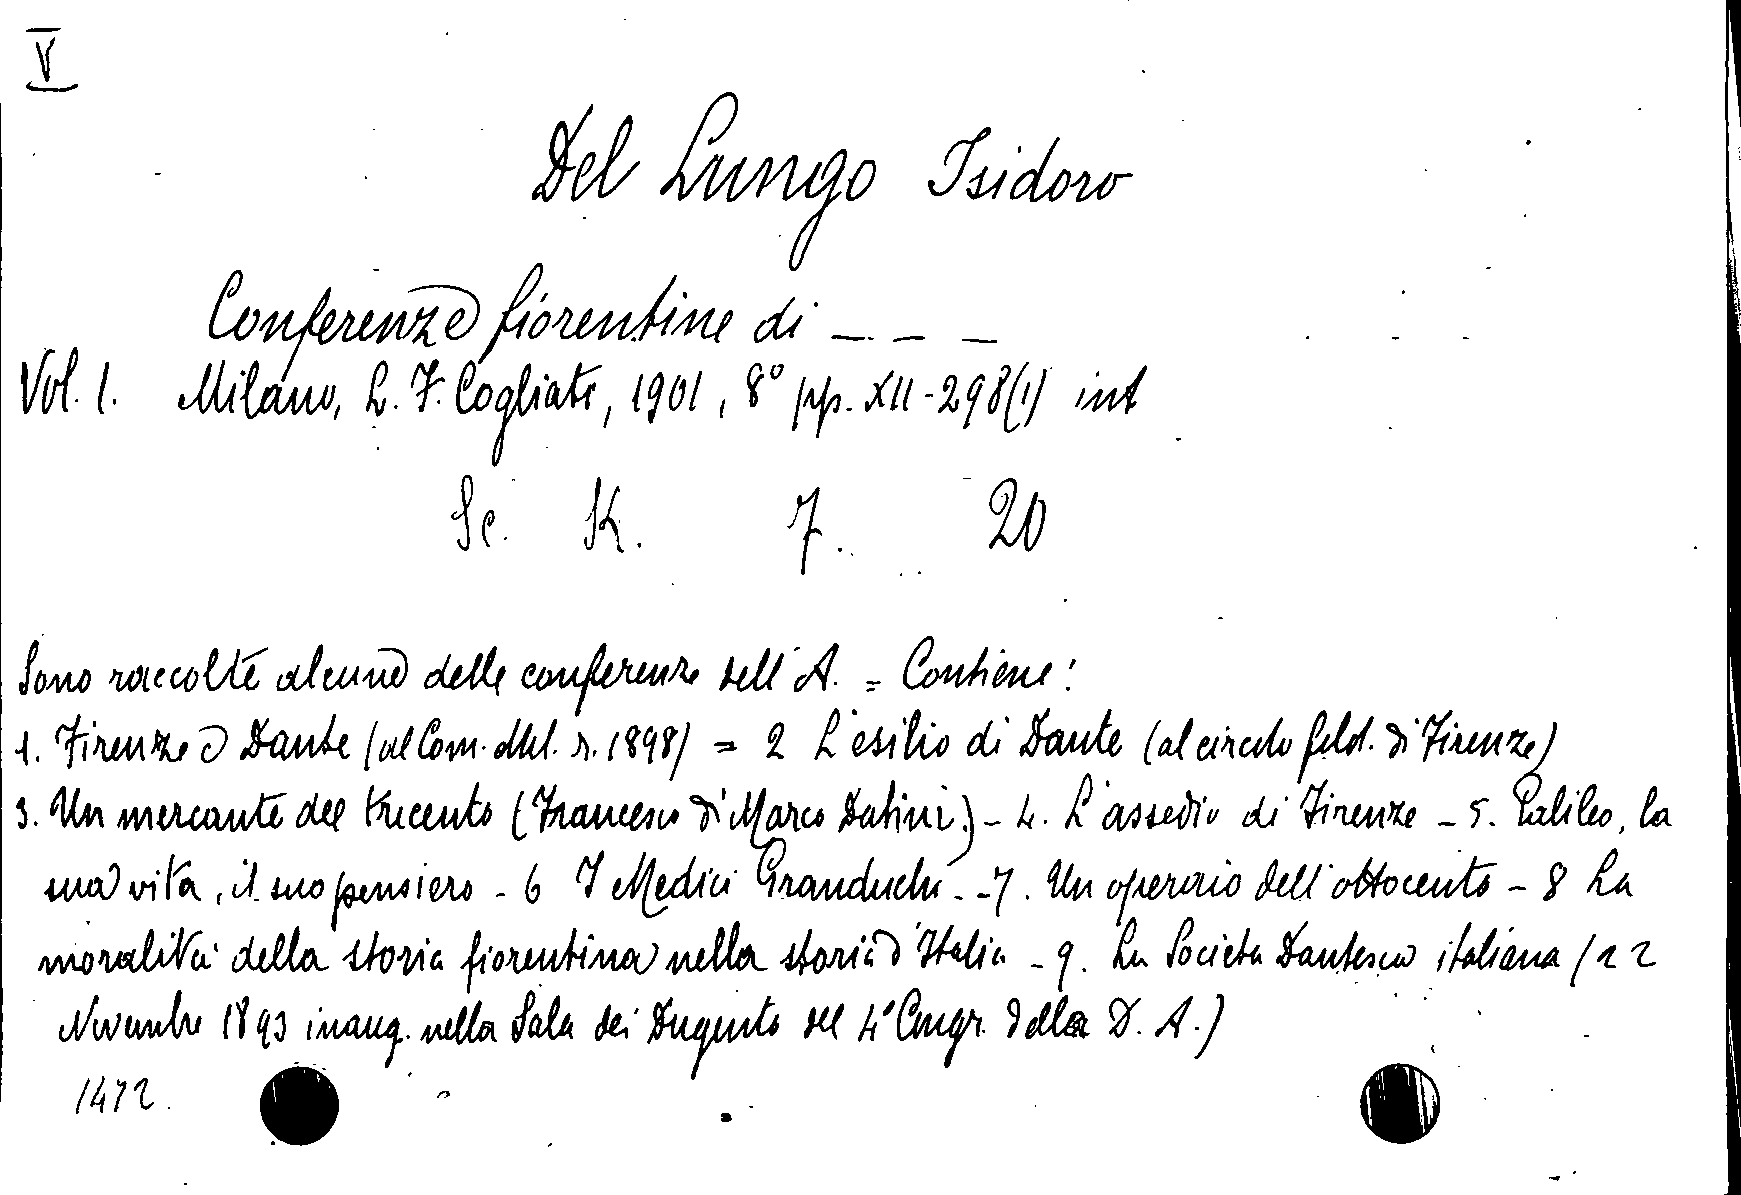 V
Del Lungo Isidoro
Conferenze fiorentine di _ _ _
Vol. 1. Milano, L. F. Cogliati, 1901, 8° pp. XII-298(1) int
Sc. K. 7. 20
Sono raccolte alcune delle conferenze dell'A. = Contiene:
1. Firenze e Dante (al Com. r. 1898) = 2 L'esilio di Dante (al circolo di Firenze)
3. Un mercante del trecento (Francesco di Marco Datini.) - 4. L'assedio di Firenze - 5. Galileo, la
sua vita, il suo pensiero - 6 I Medici Granduchi - 7. Un operaio dell'ottocento - 8 La
moralità della storia fiorentina nella storia d'Italia - 9. La Società Dantesca italiana (22
Novembre 1893 inaug. nella Sala dei Dugento del 4° Congr. della D. A.)
1472.